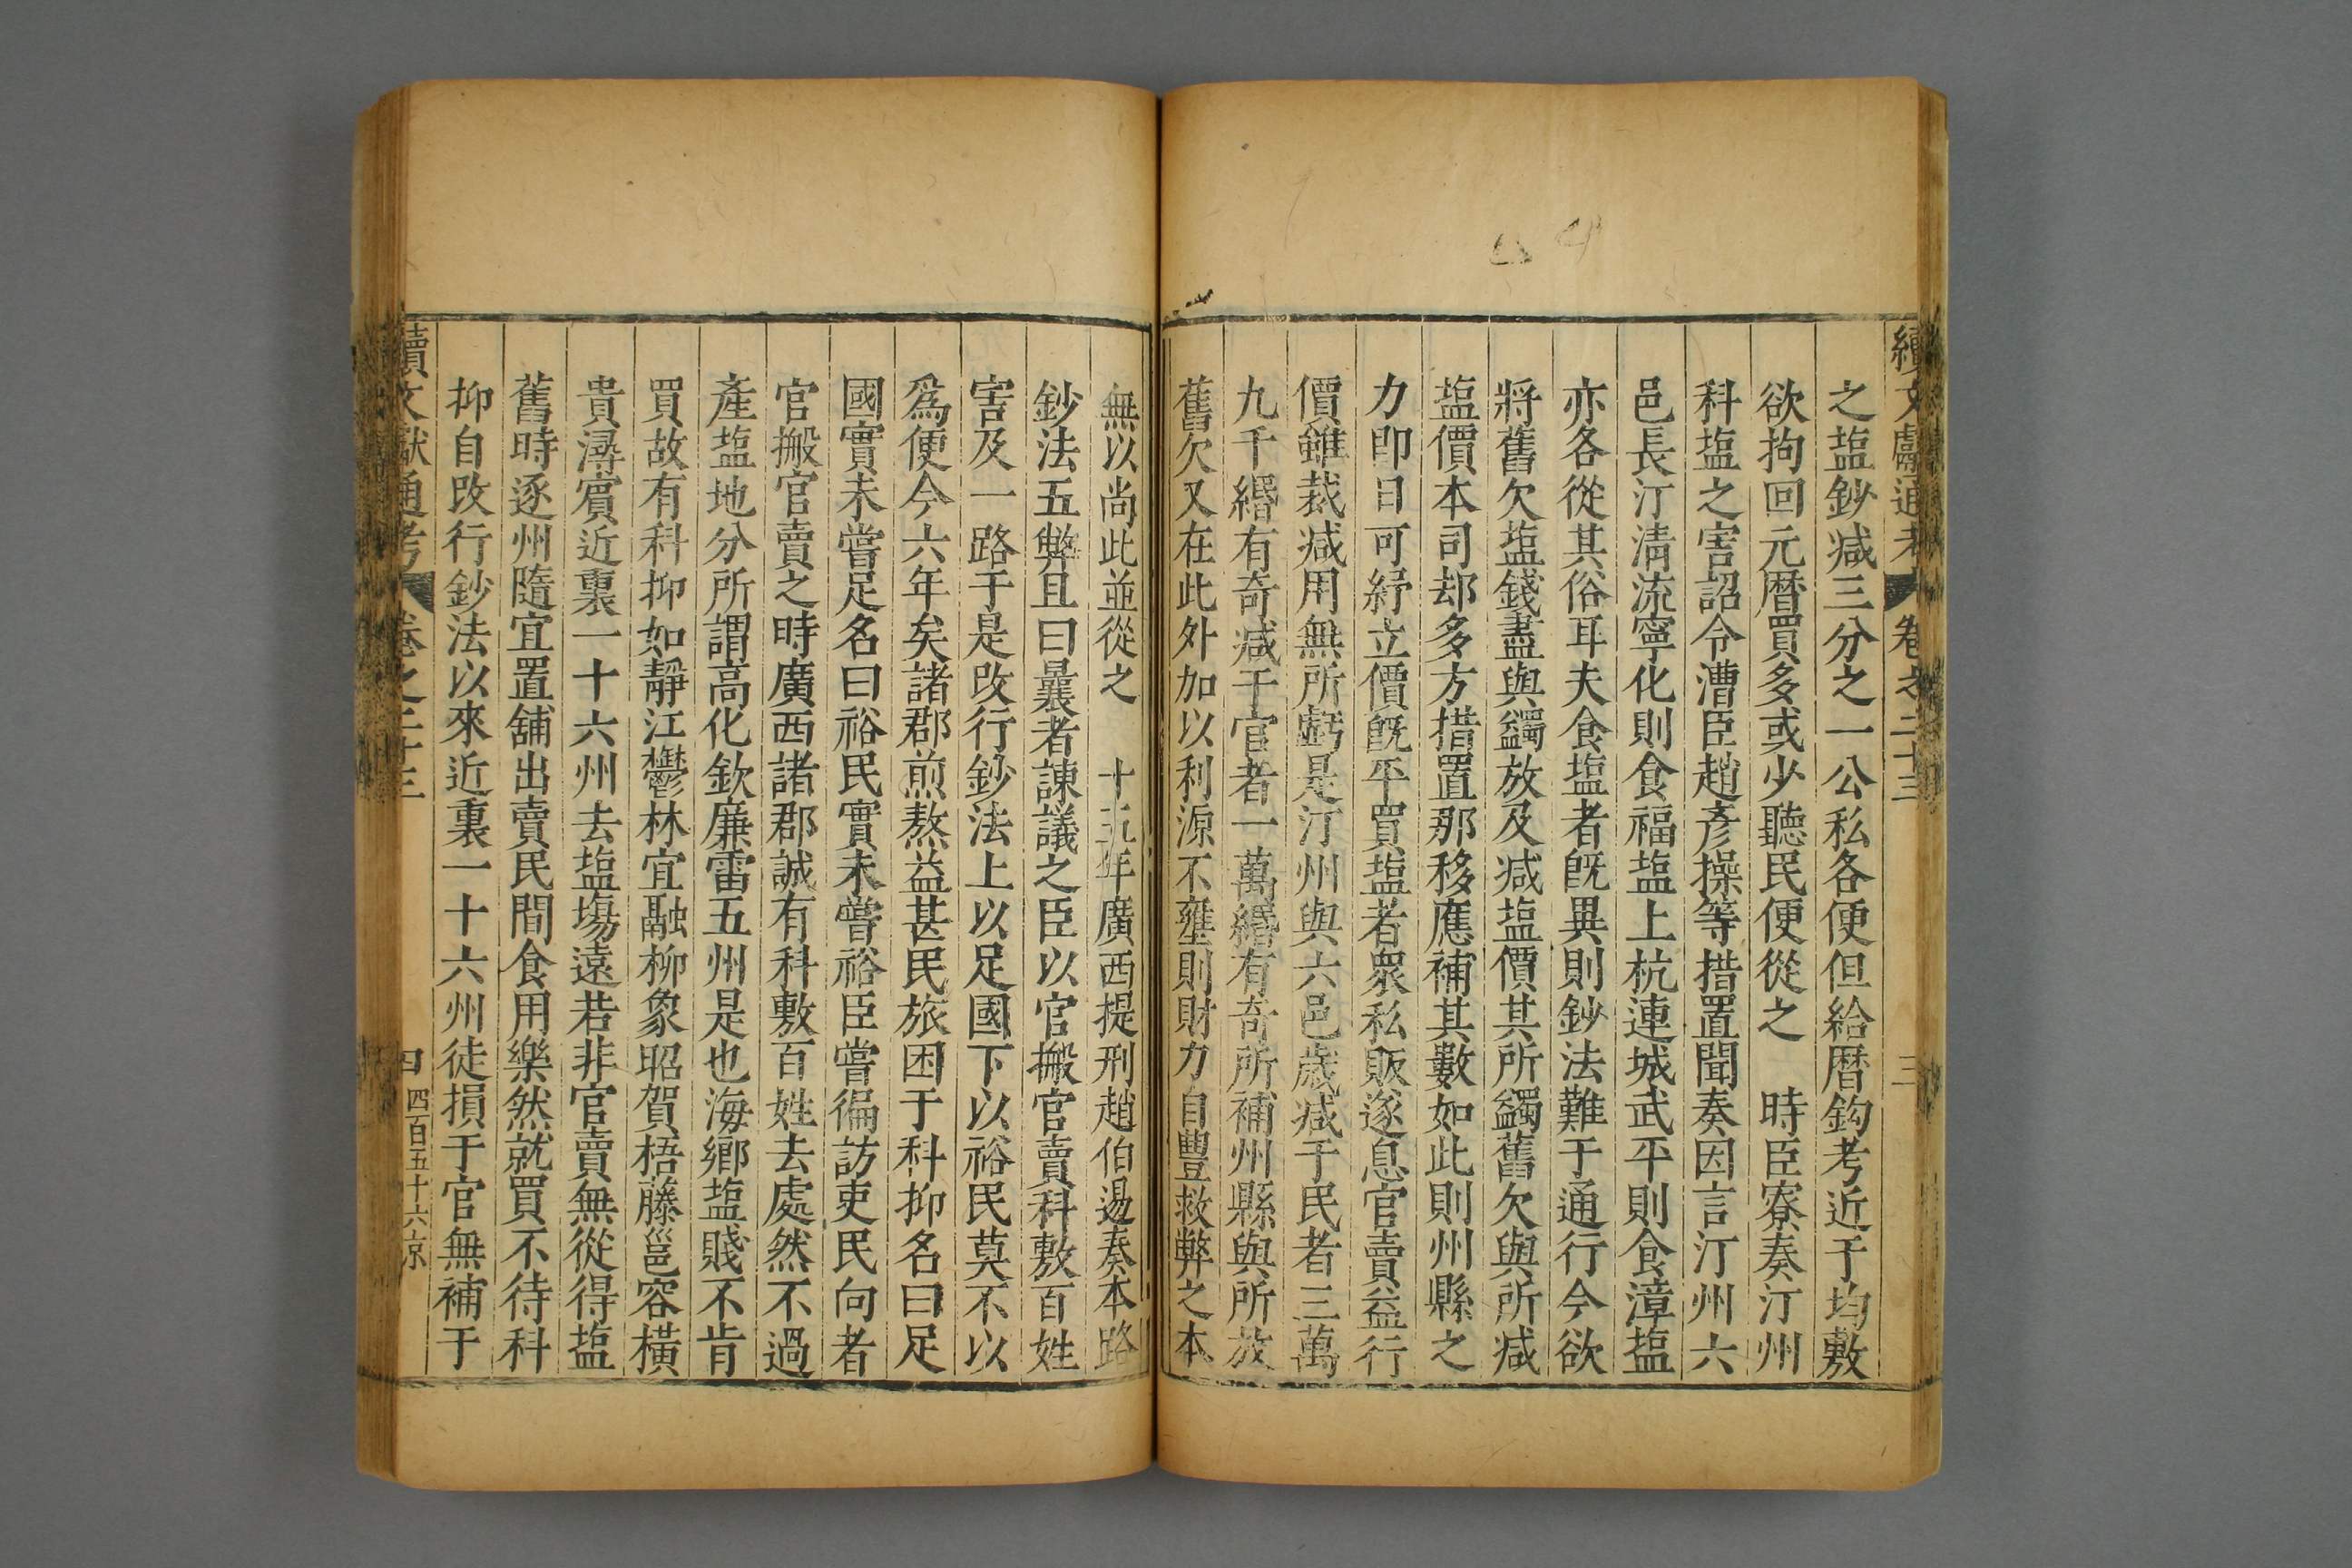 續文獻通考 卷之二十三 三
之塩鈔減三分之一公私各便但給曆鈎考近于均敷
欲拘回元曆買多或少聽民便從之 時臣寮奏汀州
科塩之害詔令漕臣趙彥操等措置聞奏因言汀州六
邑長汀清流寧化則食福塩上杭連城武平則食漳塩
亦各從其俗耳夫食塩者旣異則鈔法難于通行今欲
將舊欠塩錢盡與蠲放及減塩價其所蠲舊欠與所減
塩價本司却多方措置那移應補其數如此則州縣之
力即日可紓立價旣平買塩者衆私販遂息官賣益行
價雖裁減用無所虧是汀州與六邑歲減于民者三萬
九千緡有奇減于官者一萬緡有奇所補州縣與所放
舊欠又在此外加以利源不壅則財力自豐救弊之本
無以尚此並從之 十五年廣西提刑趙伯逷奏本路
鈔法五弊且曰曩者諫議之臣以官搬官賣科敷百姓
害及一路于是改行鈔法上以足國下以裕民莫不以
爲便今六年矣諸郡煎熬益甚民旅困于科抑名曰足
國實未嘗足名曰裕民實未嘗裕臣嘗徧訪吏民向者
官搬官賣之時廣西諸郡誠有科敷百姓去處然不過
產塩地分所謂高化欽廉雷五州是也海鄉塩賤不肯
買故有科抑如靜江鬱林宜融柳象昭賀梧藤邕容橫
貴潯賓近裏一十六州去塩塲遠若非官賣無從得塩
舊時逐州隨宜置舖出賣民間食用樂然就買不待科
抑自改行鈔法以來近裏一十六州徒損于官無補于
續文獻通考 卷之二十三 四 四百五十六 京